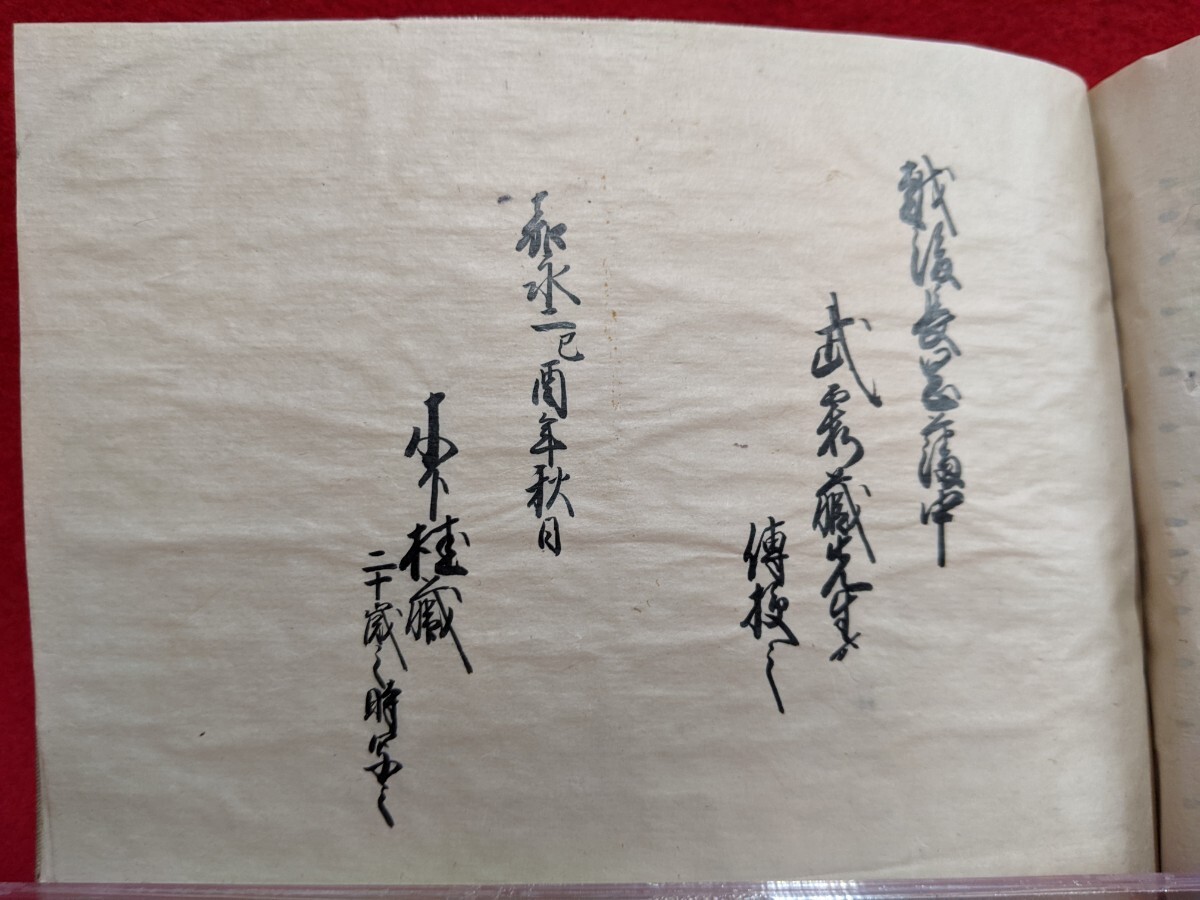 越後長岡藩中
武藏先生ゟ
傳授之
嘉永二己酉年秋日
桂藏
二十歳之時写之